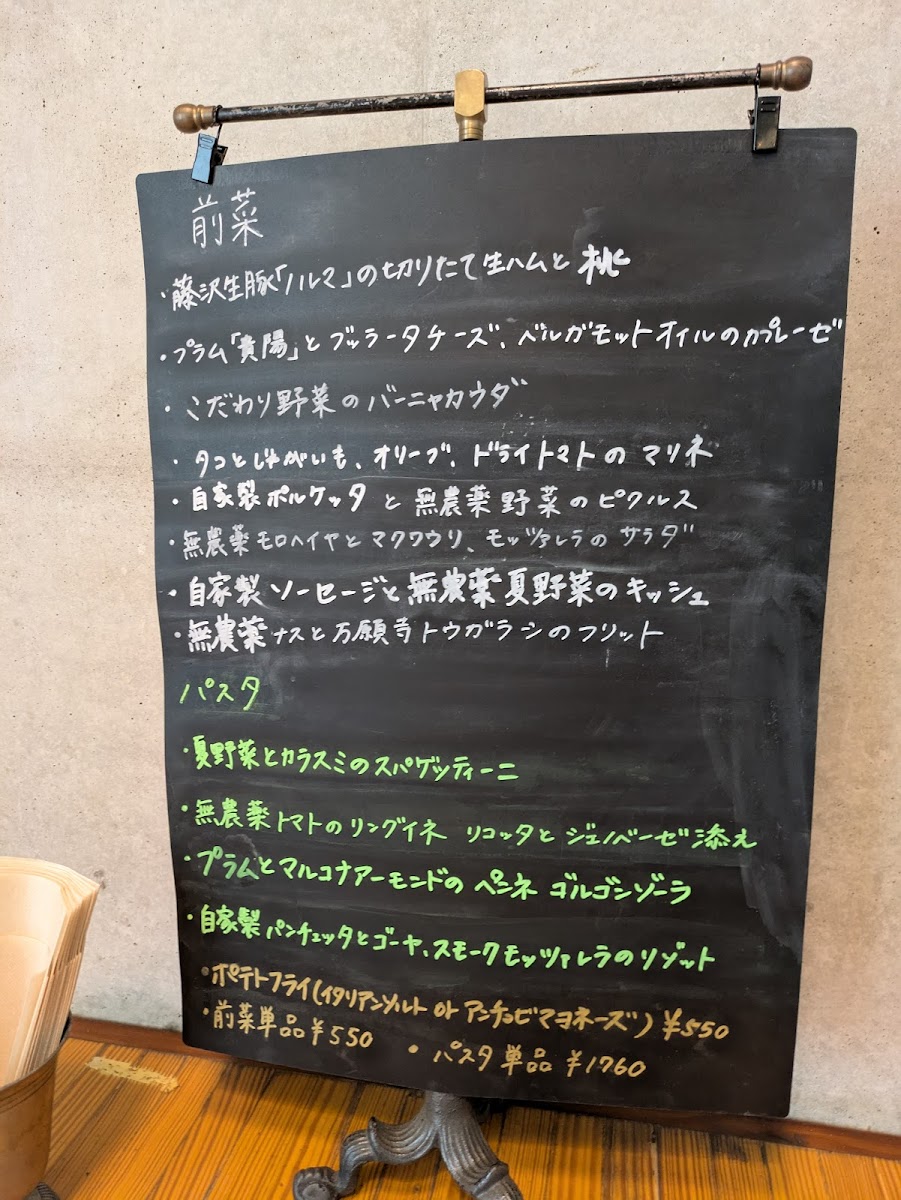 前菜
・藤沢生豚「ノルマ」の切りたて生ハムと桃
・プラム「貴陽」とブッラータチーズ、ベルガモットオイルのカプレーゼ
・こだわり野菜のバーニャカウダ
・タコとじゃがいも、オリーブ、ドライトマトのマリネ
・自家製ポルケッタと無農薬野菜のピクルス
・無農薬モロヘイヤとマクワウリ、モッツァレラのサラダ
・自家製ソーセージと無農薬夏野菜のキッシュ
・無農薬ナスと万願寺トウガラシのフリット
パスタ
・夏野菜とカラスミのスパゲッティーニ
・無農薬トマトのリングイネ リコッタとジェノベーゼ添え
・プラムとマルコナアーモンドのペンネ ゴルゴンゾーラ
・自家製パンチェッタとゴーヤ、スモークモッツァレラのリゾット
・ポテトフライ(イタリアンソルト or アンチョビマヨネーズ) ¥550
・前菜単品¥550 ・パスタ単品 ¥1760